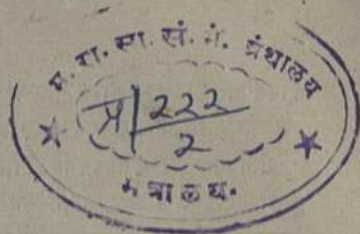 म. रा. सा. सं. मं. ग्रंथालय
प्र/222
2
मंत्रालय.